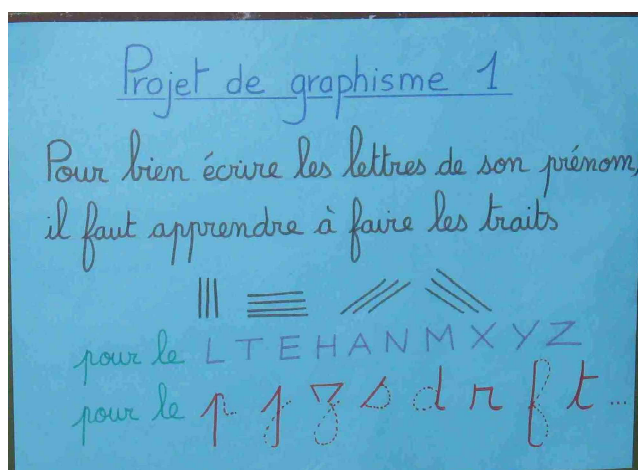 Projet de graphisme 1
Pour bien écrire les lettres de son prénom,
il faut apprendre à faire les traits
pour le L T E H A N M X Y Z
pour le p j z s d r f t ...